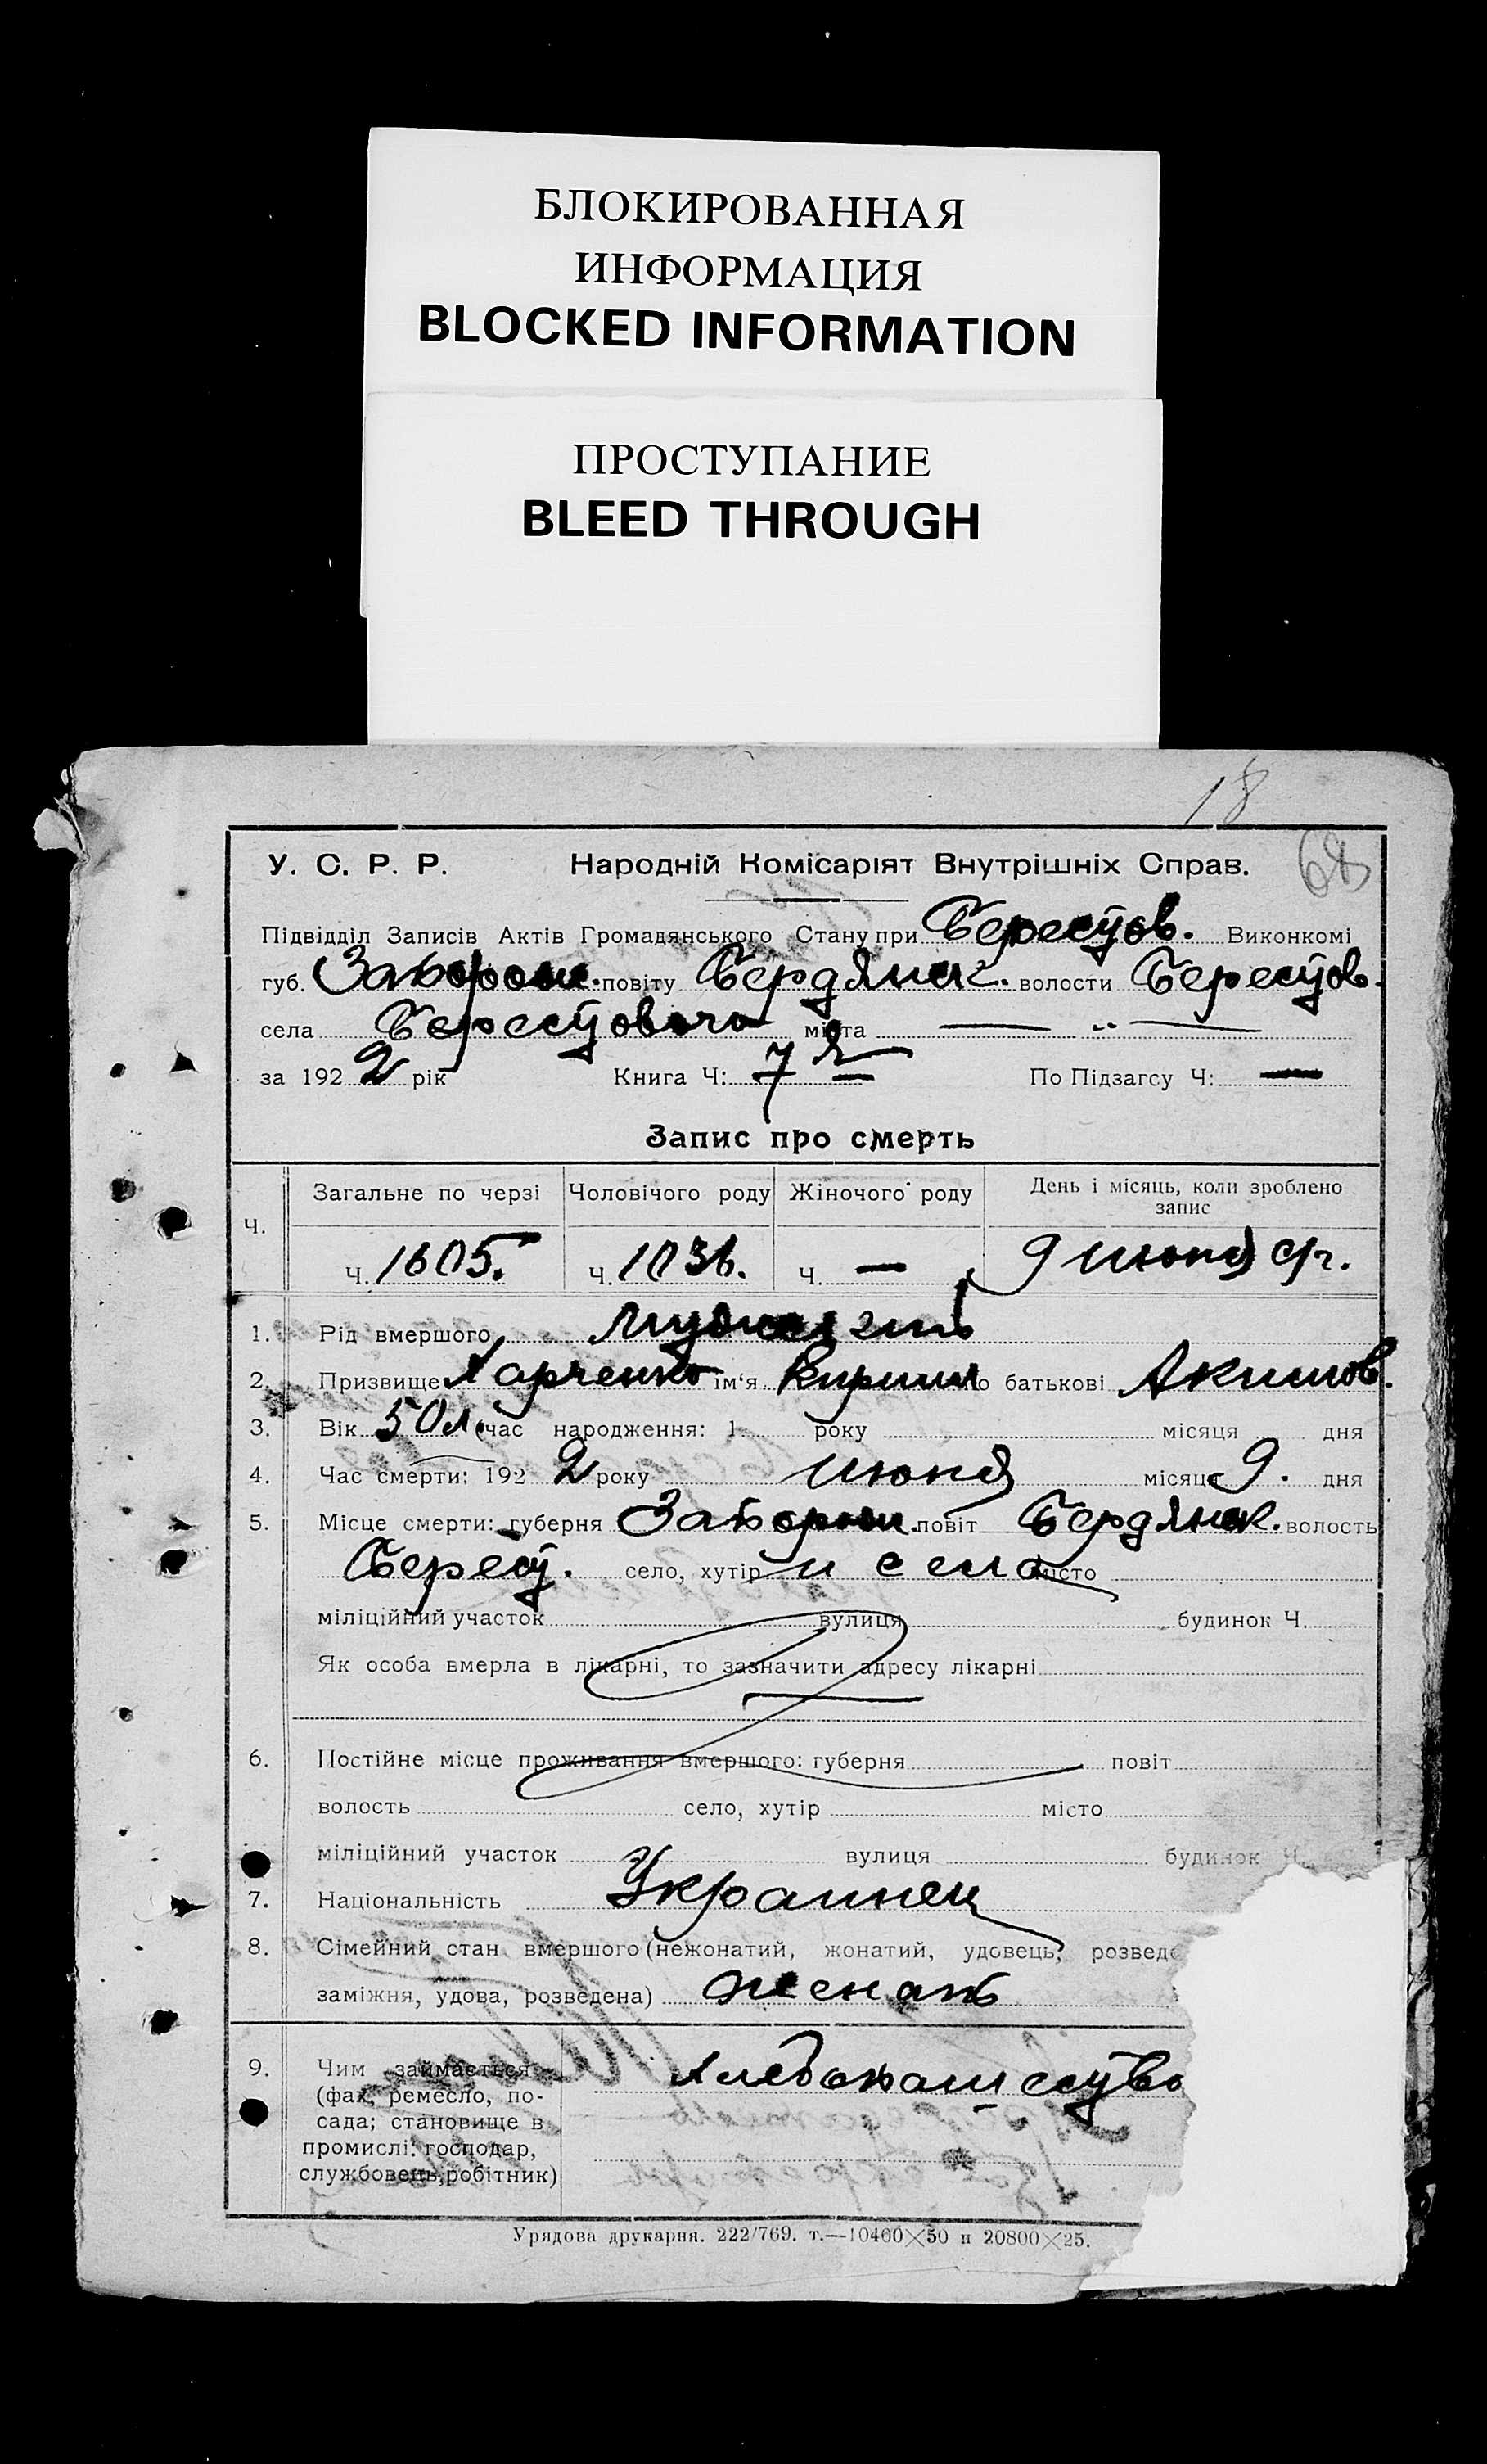 БЛОКИРОВАННАЯ
ИНФОРМАЦИЯ
BLOCKED INFORMATION
ПРОСТУПАНИЕ
BLEED THROUGH
18
68
У. С. Р. Р. Народній Комісаріят Внутрішніх Справ.
Підвідділ Записів Актів Громадянського Стану при Берестов. Виконкомі
губ. Запорож. повіту Бердянск. волости Берестов.
села Берестового міста — „ —
за 1922 рік Книга Ч: 7 По Підзагсу Ч: —
Запис про смерть
Загальне по черзі Чоловічого роду Жіночого роду День і місяць, коли зроблено
запис
Ч.
Ч. 1605. Ч. 1036. Ч. — 9 июня с/г.
1. Рід вмершого
2. Призвище Харченко ім'я Кирилл по батькові Акимов.
3. Вік 50 л. час народження: 1 року місяця дня
4. Час смерти: 1922 року июня місяця 9. дня
5. Місце смерти: губерня Запорож. повіт Бердянск. волость
Берест. село, хутір и села місто
міліційний участок вулиця будинок Ч.
Як особа вмерла в лікарні, то зазначити адресу лікарні
6. Постійне місце проживання вмершого: губерня повіт
волость село, хутір місто
міліційний участок вулиця будинок Ч.
7. Національність Украинец
8. Сімейний стан вмершого (нежонатий, жонатий, удовець, розведе
заміжня, удова, розведена) женат
9. Чим займається Хлебопашество
(фах, ремесло, по-
сада; становище в
промислі: господар,
службовець, робітник)
Урядова друкарня. 222/769. т.—10400×50 и 20800×25.